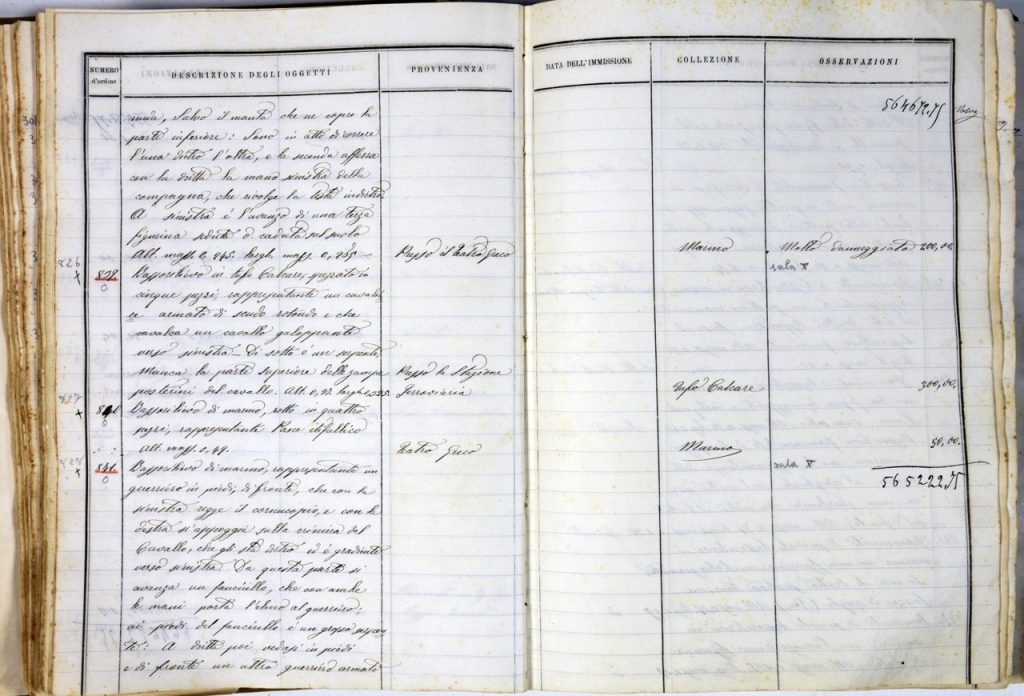 NUMERO d'ordine
DESCRIZIONE DEGLI OGGETTI
PROVENIENZA
DATA DELL'IMMISSIONE
COLLEZIONE
OSSERVAZIONI
564672.75
nuda, salvo il manto che ne copre la
parte inferiore: Sono in atto di correre
l'una dietro l'altra, e la seconda afferra
con la dritta la mano sinistra della
compagna, che rivolge la testa indietro.
A sinistra è l'avanzo di una terza
figurina seduta o caduta sul suolo
Alt. mass. 0,245. largh. mass. 0,255
Presso il Teatro Greco
Marmo
Molto danneggiata 200,00
sala X
826
839
Bassorilievo in tufo Calcare, spezzato in
cinque pezzi, rappresentante un cavalie
re armato di scudo rotondo e che
cavalca un cavallo galoppante
verso sinistra - Di sotto è un serpente.
Manca la parte superiore delle zampe
posteriori del cavallo. Alt.
Presso la Stazione
Ferroviaria
Tufo Calcare
300,00.
827
840
Bassorilievo di marmo, rotto in quattro
pezzi, rappresentante Pane itifallico
Alt. mass. 0,49.
Teatro Greco
Marmo
50,00.
sala X
565222.75
828
841
Bassorilievo di marmo, rappresentante un
guerriero in piedi, di fronte, che con la
sinistra regge il cornucopio, e con la
destra s'appoggia sulla criniera del
Cavallo, che gli sta dietro ed è gradiente
verso sinistra. Da questa parte si
avanza un fanciullo, che con ambe
le mani porta l'elmo al guerriero;
ai piedi del fanciullo è un grosso serpen
te: A dritta poi vedesi in piedi
e di fronte un altro guerriero armato